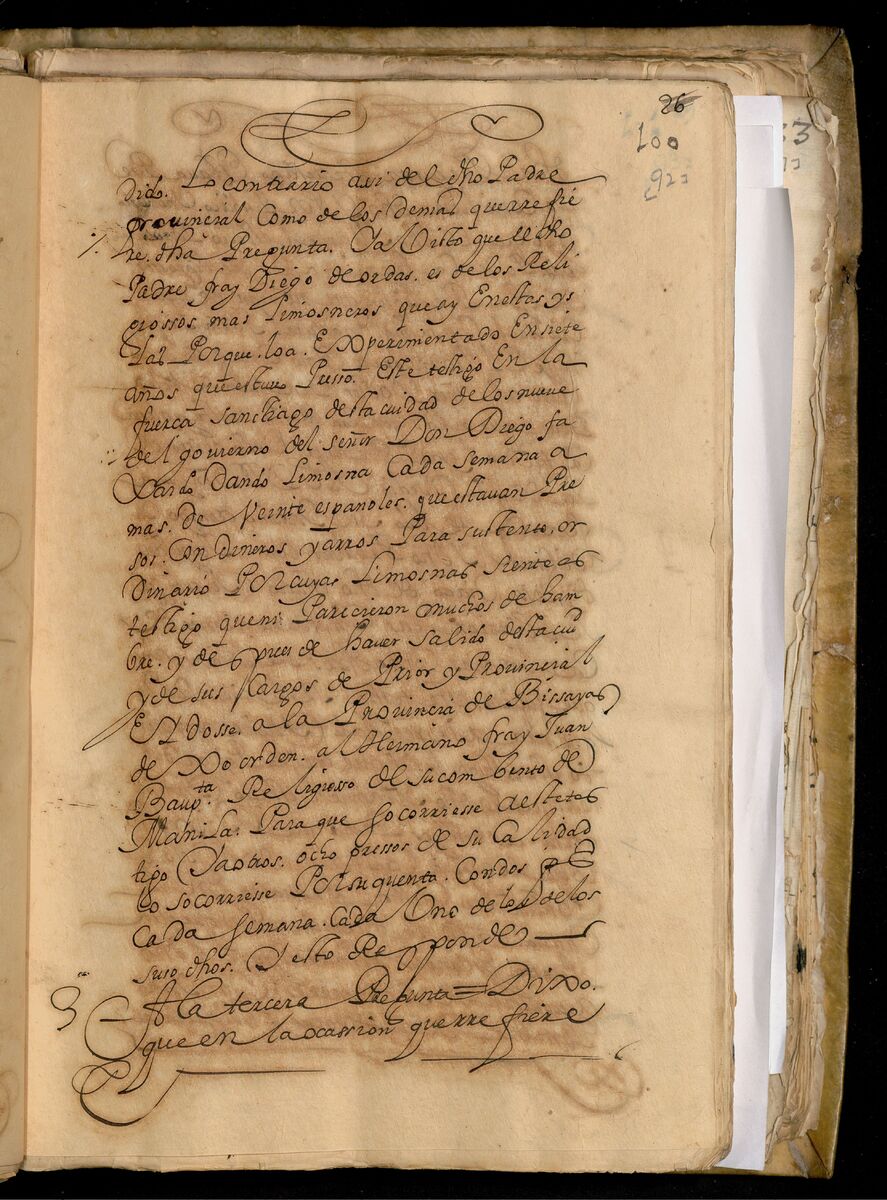 26
100
92
dido. Lo contrario axi del dho Padre
provincial Como de los demas querrefie
re. dha Pregunta. Ya Visto que el dho
Padre fray Diego de ordas. es de los Reli
giossos mas limosneros que ay En estas ys
las Porque. loa. Experimentado En siete
años que estuvo Presso. Este testigo En la
fuerça Sanctiago desta ciudad de los nueve
del govierno del señor Don Diego fa
xardo Dando Limosna Cada semana a
mas. de Veinte espanoles. que estavan Pre
sos. Con dineros y arros Para sustento, or
dinario Por cuyas Limosnas siente es
testigo que ni Parecieron muchos de ham
bre. y despues de haver salido desta ciud
y de sus Cargos de Prior y Provincial
Eydosse. a la Provincia de Bissayas
dexo orden. al Hermano fray Juan
Baupta Religiosso del su combento de
Manila. Para que socorriesse a este tes
tigo Y a otros. ocho pressos de su Calidad
lo socorriesse Por su quenta. Con dos ps
Cada semana. Cada Uno de los de los
suso dhos. Y esto Responde
3 A la tercera Pregunta = Dixo.
que en la ocassion que rrefiere